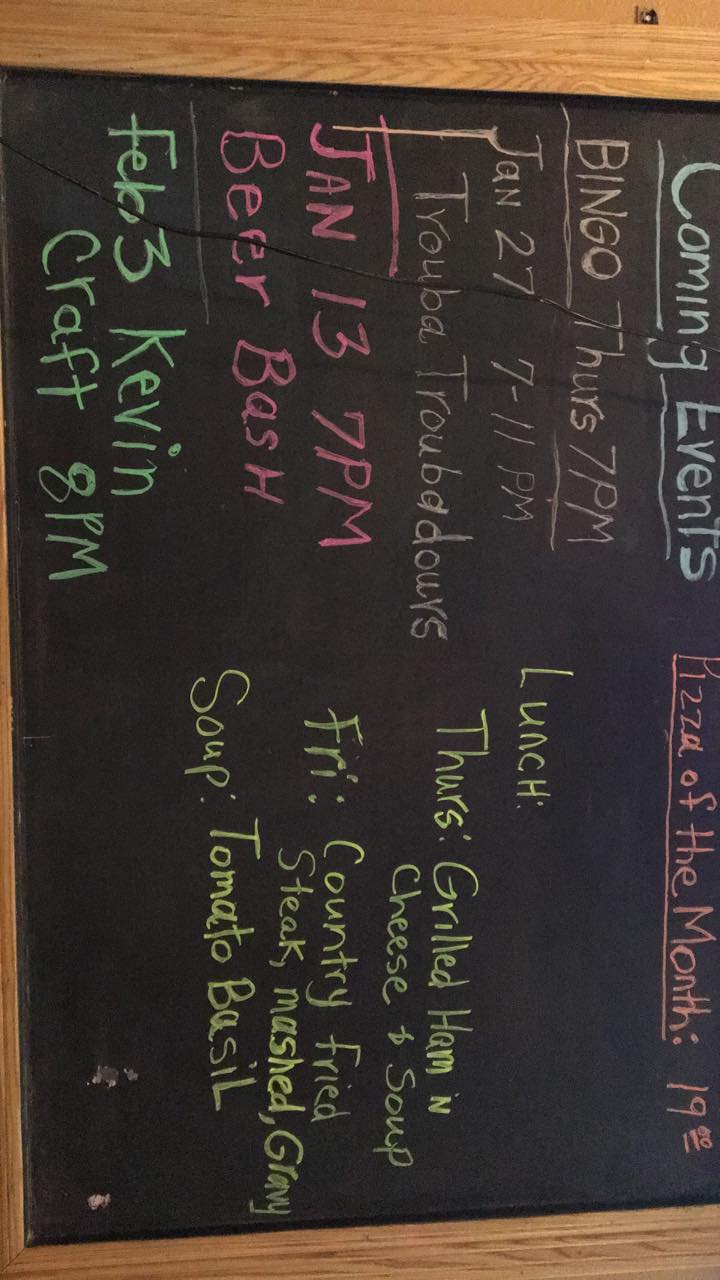 Coming Events
BINGO Thurs 7PM
Jan 27 7-11 PM
Trouba Troubadours
JAN 13 7PM
Beer Bash
Feb 3 Kevin
Craft 8PM
Pizza of the Month: 19 00
Lunch:
Thurs: Grilled Ham n
Cheese & Soup
Fri: Country Fried
Steak, mashed, Gravy
Soup: Tomato Basil